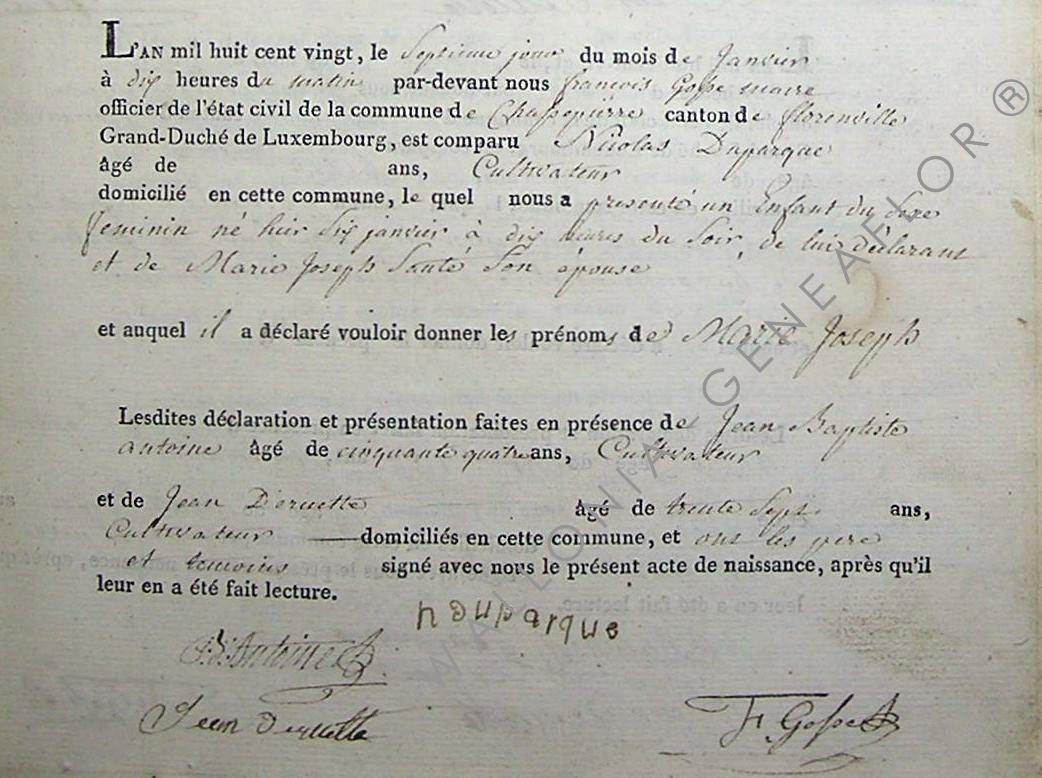 L'AN mil huit cent vingt, le Septieme jour du mois de Janvier
à dix heures du matin par-devant nous françois Gosse maire
officier de l'état civil de la commune de Chassepierre canton de florenville
Grand-Duché de Luxembourg, est comparu Nicolas Duparque
âgé de ans, Cultivateur
domicilié en cette commune, le quel nous a presenté un Enfant du Sexe
feminin né hier Six janvier à dix heures du Soir, de lui Déclarant
et de Marie Joseph Santé Son épouse
et auquel il a déclaré vouloir donner les prénoms de Marie Joseph
Lesdites déclaration et présentation faites en présence de Jean Baptiste
antoine âgé de cinquante quatre ans, Cultivateur
et de Jean Deruette âgé de trente Sept ans,
Cultivateur domiciliés en cette commune, et ont les pere
et temoins signé avec nous le présent acte de naissance, après qu'il
leur en a été fait lecture.
nduparque
J.B. Antoine
Jean Deruette
F. Gosse
WALLONIA GENEAFLOR ®